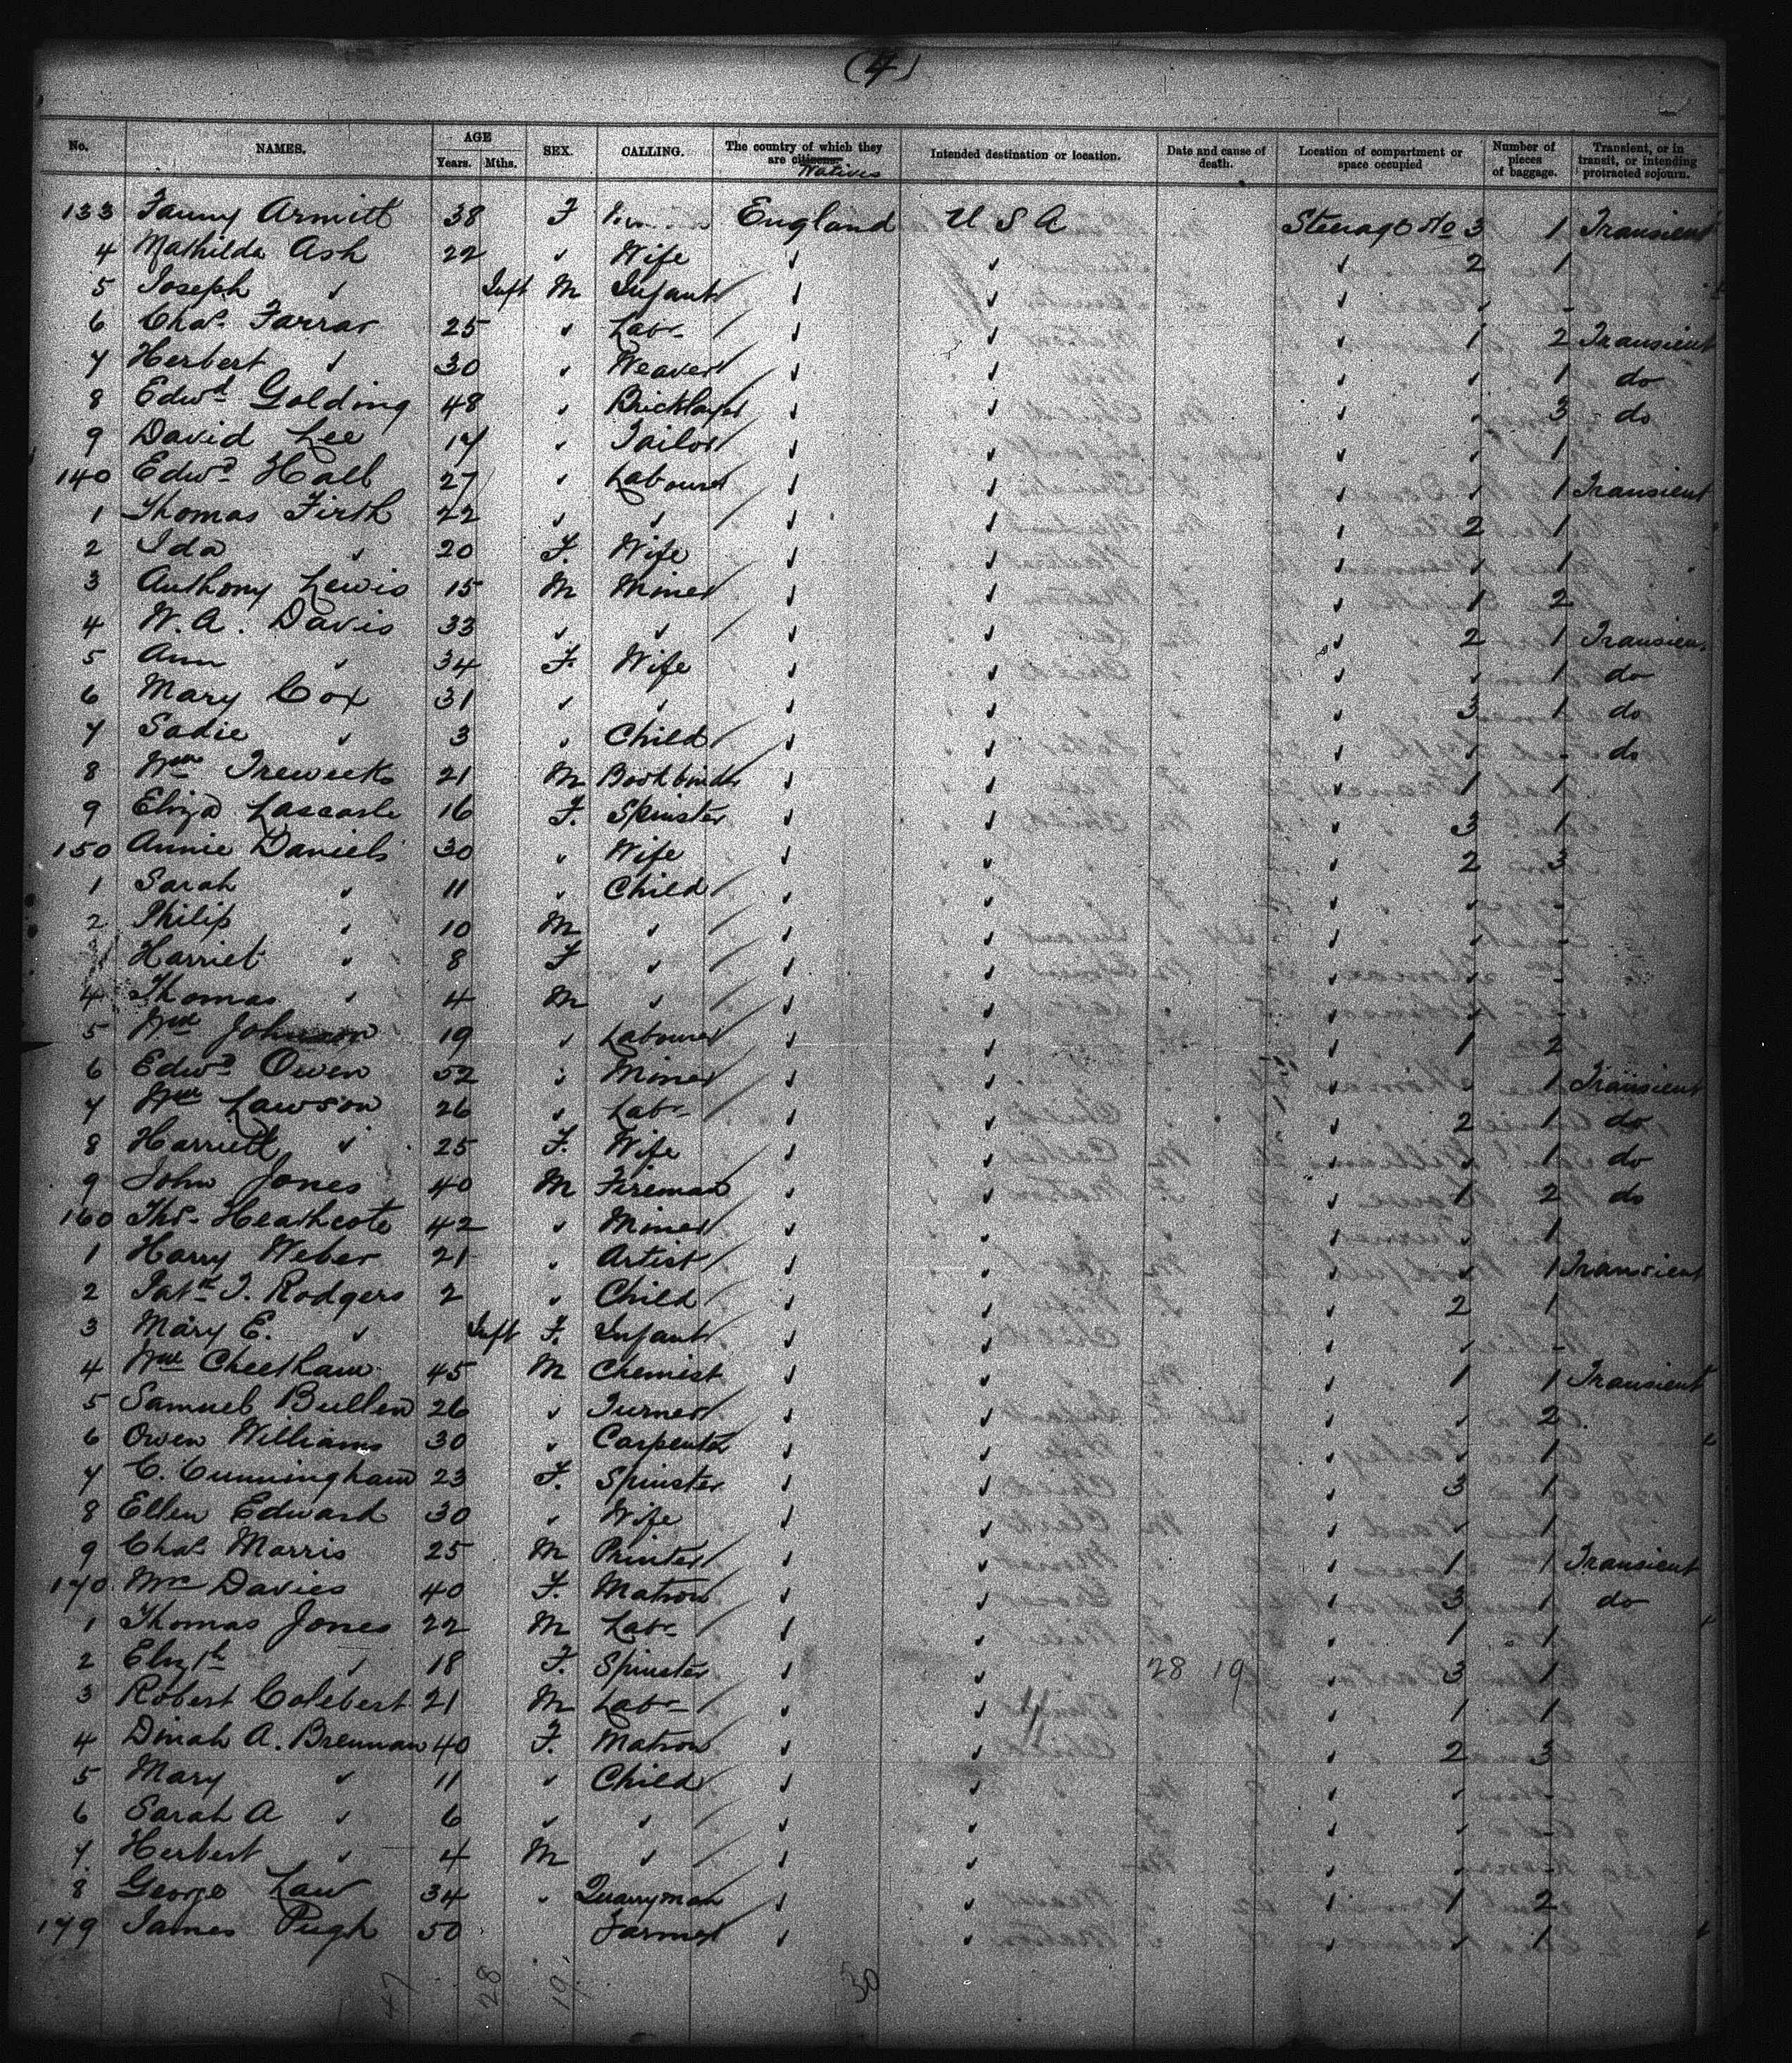 (4)
No. NAMES. AGE Years. Mths. SEX. CALLING. The country of which they are citizens. Natives Intended destination or location. Date and cause of death. Location of compartment or space occupied Number of pieces of baggage. Transient, or in transit, or intending protracted sojourn.
133 Fanny Armitt 38 F England U S A Steerage No 3 1 Transient
4 Mathilda Ash 22 " Wife " " " 2 1
5 Joseph " Inft M Infant " " " " -
6 Chas. Farrar 25 " Labr " " " 1 2 Transient
7 Herbert " 30 " Weaver " " " " 1 do
8 Edwd Golding 48 " Bricklayer " " " " 3 do
9 David Lee 17 " Tailor " " " " 1
140 Edwd Hall 27 " Labourer " " " " 1 Transient
1 Thomas Firth 22 " " " " " 2 1
2 Ida " 20 F. Wife " " " " 1
3 Anthony Lewis 15 M Miner " " " 1 2
4 W. A. Davis 33 " " " " " 2 1 Transien
5 Ann " 34 F. Wife " " " " 1 do
6 Mary Cox 31 " " " " " 3 1 do
7 Sadie " 3 " Child " " " " - do
8 Wm Treweeks 21 M Bookbinder " " " 1 1
9 Eliza 16 F. Spinster " " " 3 1
150 Annie Daniels 30 " Wife " " " 2 3
1 Sarah " 11 " Child " " " " -
2 Philip " 10 M " " " " " -
Harriet " 8 F " " " " " -
4 Thomas " 4 M " " " "
5 Wm Johnson 19 " Labourer " " " 1 2
6 Edwd Owen 52 " Miner " " " " 1 Transient
7 Wm Lawson 26 " Labr " " " 2 1 do
8 Harriett " 25 F. Wife " " " " 1 do
9 John Jones 40 M Fireman " " " 1 2 do
160 Thos. Heathcote 42 " Miner " " " " 1
1 Harry Weber 21 " Artist " " " " 1 Transient
2 Patk J. Rodgers 2 " Child " " " 2 1
3 Mary E. " Inft F. Infant " " " " -
4 Wm Cheetham 45 M Chemist " " " 1 1 Transient
5 Samuel Bullen 26 " Turner " " " " 2
6 Owen Williams 30 " Carpenter " " " " 1
7 C. Cunningham 23 F. Spinster " " " 3 1
8 Ellen Edward 30 " Wife " " " " 1
9 Chas. Morris 25 M Printer " " " 1 1 Transient
170 Mrs Davies 40 F. Matron " " " 3 1 do
1 Thomas Jones 22 M Labr " " " 1 1
2 Elizth " 18 F. Spinster " " 28 19 " 3 1
3 Robert Colebert 21 M Labr " " " 1 1
4 Dinah A. Brennan 40 F. Matron " " " 2 3
5 Mary " 11 " Child " " " " -
6 Sarah A " 6 " " " " " " -
7 Herbert " 4 M " " " " " -
8 George Law 34 " Quarryman " " " 1 2
179 James Pugh 50 Farmer " " " " 1
47 28 19 30